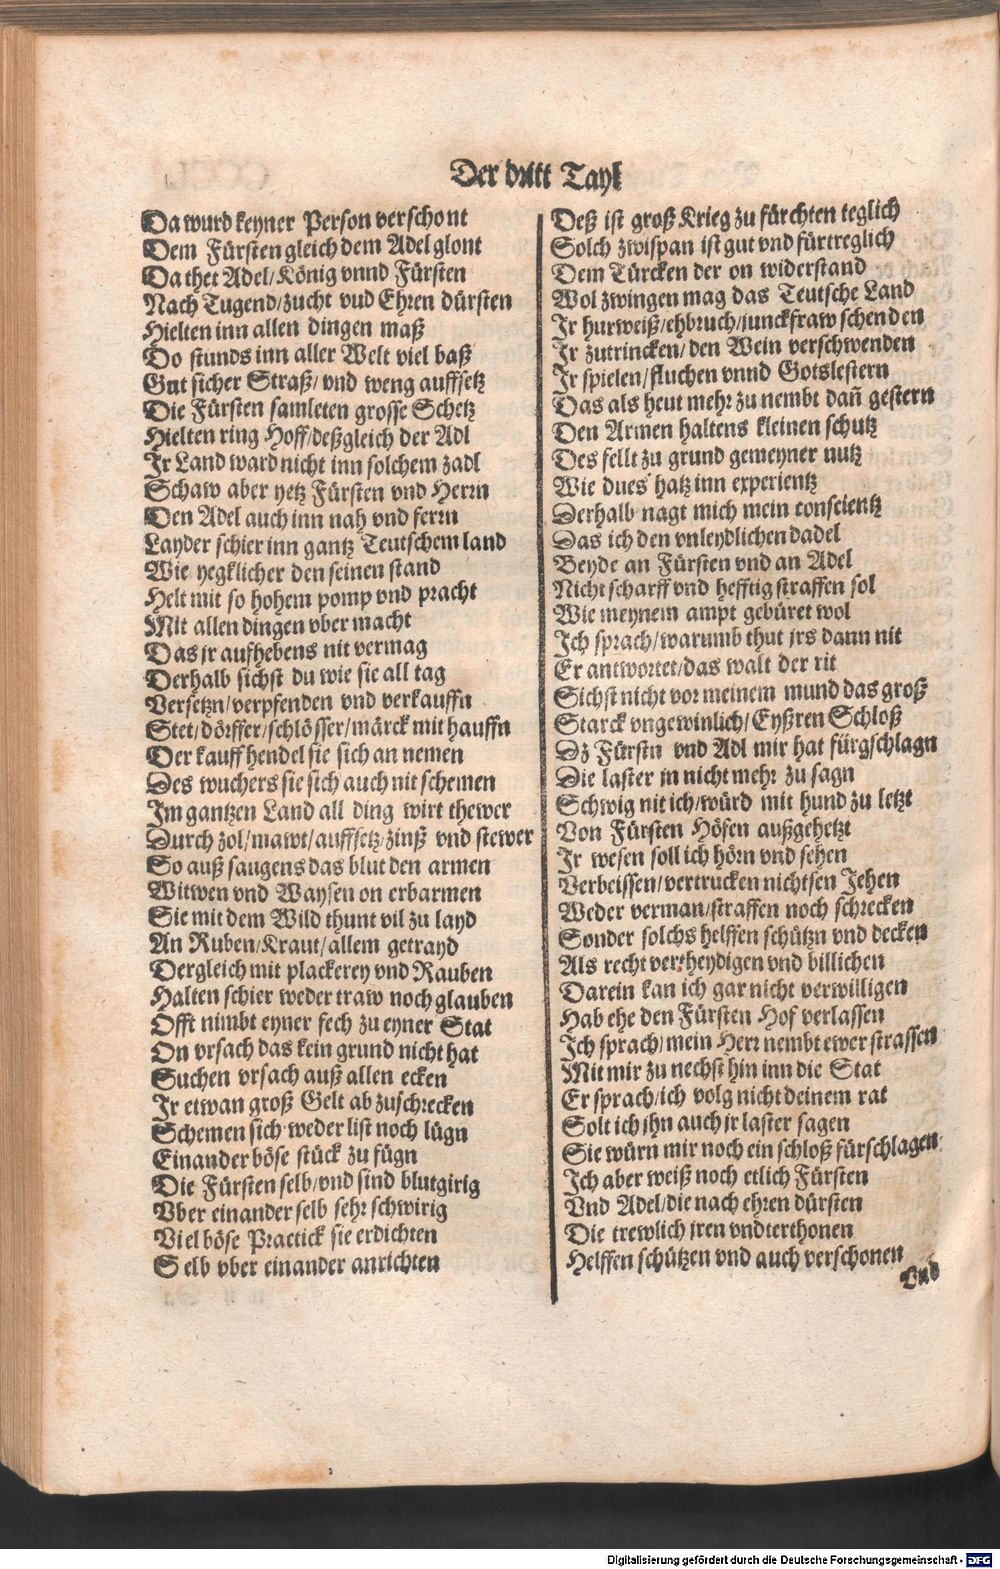 Der dritt Tayl
Da wurd keyner Person verschont
Dem Fürsten gleich dem Adel glont
Da thet Adel/König vnnd Fürsten
Nach Tugend/zucht vud Ehren dürsten
Hielten inn allen dingen maß
Do stunds inn aller Welt viel baß
Gut sicher Straß/vnd weng auffsetz
Die Fürsten samleten grosse Schetz
Hielten ring Hoff/deßgleich der Adl
Jr Land ward nicht inn solchem zadl
Schaw aber yetz Fürsten vnd Herrn
Den Adel auch inn nah vnd ferrn
Layder schier inn gantz Teutschem land
Wie yegklicher den seinen stand
Helt mit so hohem pomp vnd pracht
Mit allen dingen vber macht
Das jr aufhebens nit vermag
Derhalb sichst du wie sie all tag
Versetzn/verpfenden vnd verkauffn
Stet/dörffer/schlösser/märck mit hauffn
Der kauff hendel sie sich an nemen
Des wuchers sie sich auch nit schemen
Im gantzen Land all ding wirt thewer
Durch zol/mawt/auffsetz/zinß vnd stewer
So auß saugens das blut den armen
Witwen vnd Waysen on erbarmen
Sie mit dem Wild thunt vil zu layd
An Ruben/Kraut/allem getrayd
Dergleich mit plackerey vnd Rauben
Halten schier weder traw noch glauben
Offt nimbt eyner fech zu eyner Stat
On vrsach das kein grund nicht hat
Suchen vrsach auß allen ecken
Jr etwan groß Gelt ab zuschrecken
Schemen sich weder list noch lügn
Einander böse stück zu fügn
Die Fürsten selb/vnd sind blutgirig
Vber einander selb sehr schwirig
Viel böse Practick sie erdichten
Selb vber einander anrichten
Deß ist groß Krieg zu fürchten teglich
Solch zwispan ist gut vnd fürtreglich
Dem Türcken der on widerstand
Wol zwingen mag das Teutsche Land
Jr hurweiß/ehbruch/junckfraw schenden
Jr zutrincken/den Wein verschwenden
Jr spielen/fluchen vnnd Gotslestern
Das als heut mehr zu nembt dañ gestern
Den Armen haltens kleinen schutz
Des fellt zu grund gemeyner nutz
Wie dues hatz inn experientz
Derhalb nagt mich mein conscientz
Das ich den vnleydlichen dadel
Beyde an Fürsten vnd an Adel
Nicht scharff vnd hefftig straffen sol
Wie meynem ampt gebüret wol
Ich sprach/warumb thut jrs dann nit
Er antwortet/das walt der rit
Sichst nicht vor meinem mund das groß
Starck vngewinlich/Eyßren Schloß
Dz Fürstn vnd Adl mir hat fürgschlagn
Die laster in nicht mehr zu sagn
Schwig nit ich/würd mit hund zu letzt
Von Fürsten Höfen außgehetzt
Jr wesen soll ich hörn vnd sehen
Verbeissen/vertrucken nichtsen Jehen
Weder verman/straffen noch schrecken
Sonder solchs helffen schützn vnd decken
Als recht vertheydigen vnd billichen
Darein kan ich gar nicht verwilligen
Hab ehe den Fürsten Hof verlassen
Ich sprach/mein Herr nembt ewer strassen
Mit mir zu nechst hin inn die Stat
Er sprach/ich volg nicht deinem rat
Solt ich jhn auch jr laster sagen
Sie würn mir noch ein schloß fürschlagen
Ich aber weiß noch etlich Fürsten
Vnd Adel/die nach ehren dürsten
Die trewlich jren vndterthonen
Helffen schützen vnd auch verschonen
Vnd
Digitalisierung gefördert durch die Deutsche Forschungsgemeinschaft - DFG